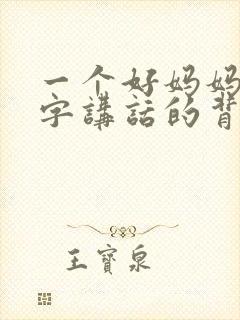 一个好妈妈
字講話的背
王寶泉